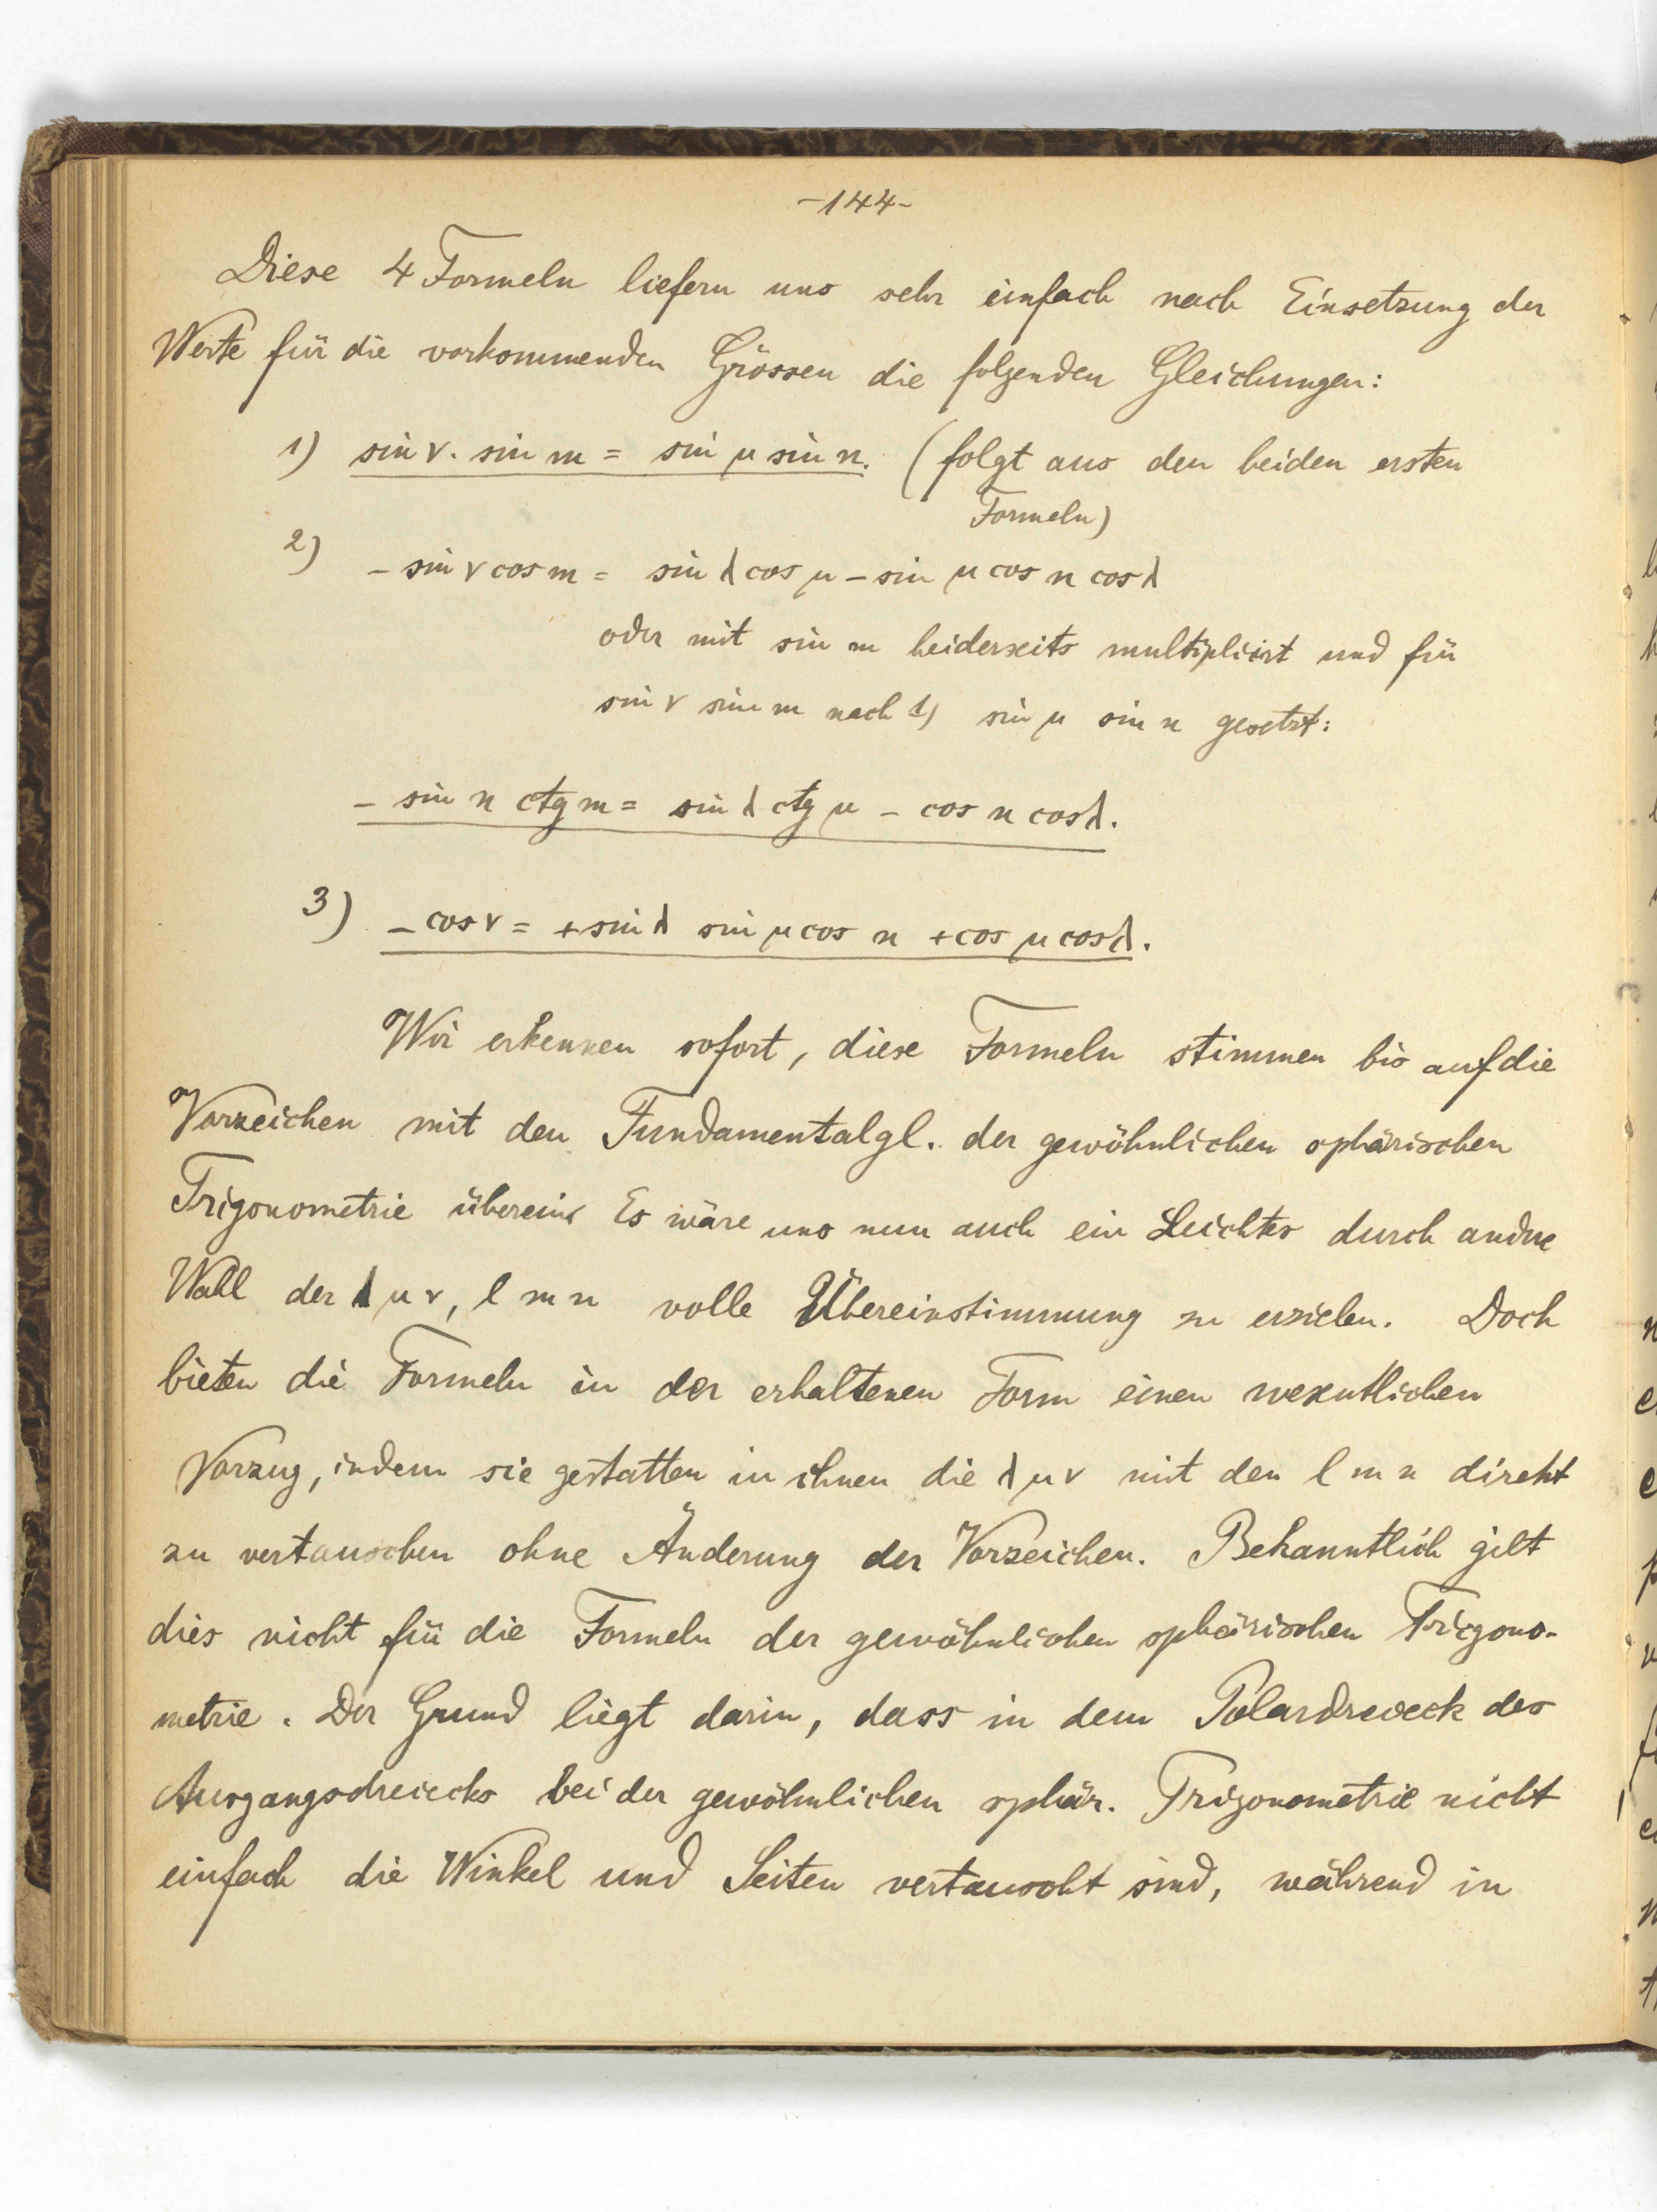 -144-
Diese 4 Formeln liefern uns sehr einfach nach Einsetzung der
Werte für die vorkommenden Grössen die folgenden Gleichungen:
1) sin ν. sin m = sin μ sin n. (folgt aus den beiden ersten
Formeln)
2) - sin ν cos m = sin λ cos μ - sin μ cos n cos λ
oder mit sin m beiderseits multiplicirt und für
sin ν sin m nach 1) sin μ sin n gesetzt:
- sin n ctg m = sin λ ctg μ - cos n cos λ.
3) - cos ν = + sin λ sin μ cos n + cos μ cos λ.
Wir erkennen sofort, diese Formeln stimmen bis auf die
Vorzeichen mit den Fundamentalgl. der gewöhnlichen sphärischen
Trigonometrie überein. Es wäre uns nun auch ein Leichtes durch andre
Wahl der λ μ ν, l m n volle Übereinstimmung zu erzielen. Doch
bieten die Formeln in der erhaltenen Form einen wesentlichen
Vorzug, indem sie gestatten in ihnen die λ μ ν mit den l m n direkt
zu vertauschen ohne Änderung der Vorzeichen. Bekanntlich gilt
dies nicht für die Formeln der gewöhnlichen sphärischen Trigono-
metrie. Der Grund liegt darin, dass in dem Polardreieck des
Ausgangsdreiecks bei der gewöhnlichen sphär. Trigonometrie nicht
einfach die Winkel und Seiten vertauscht sind, während in